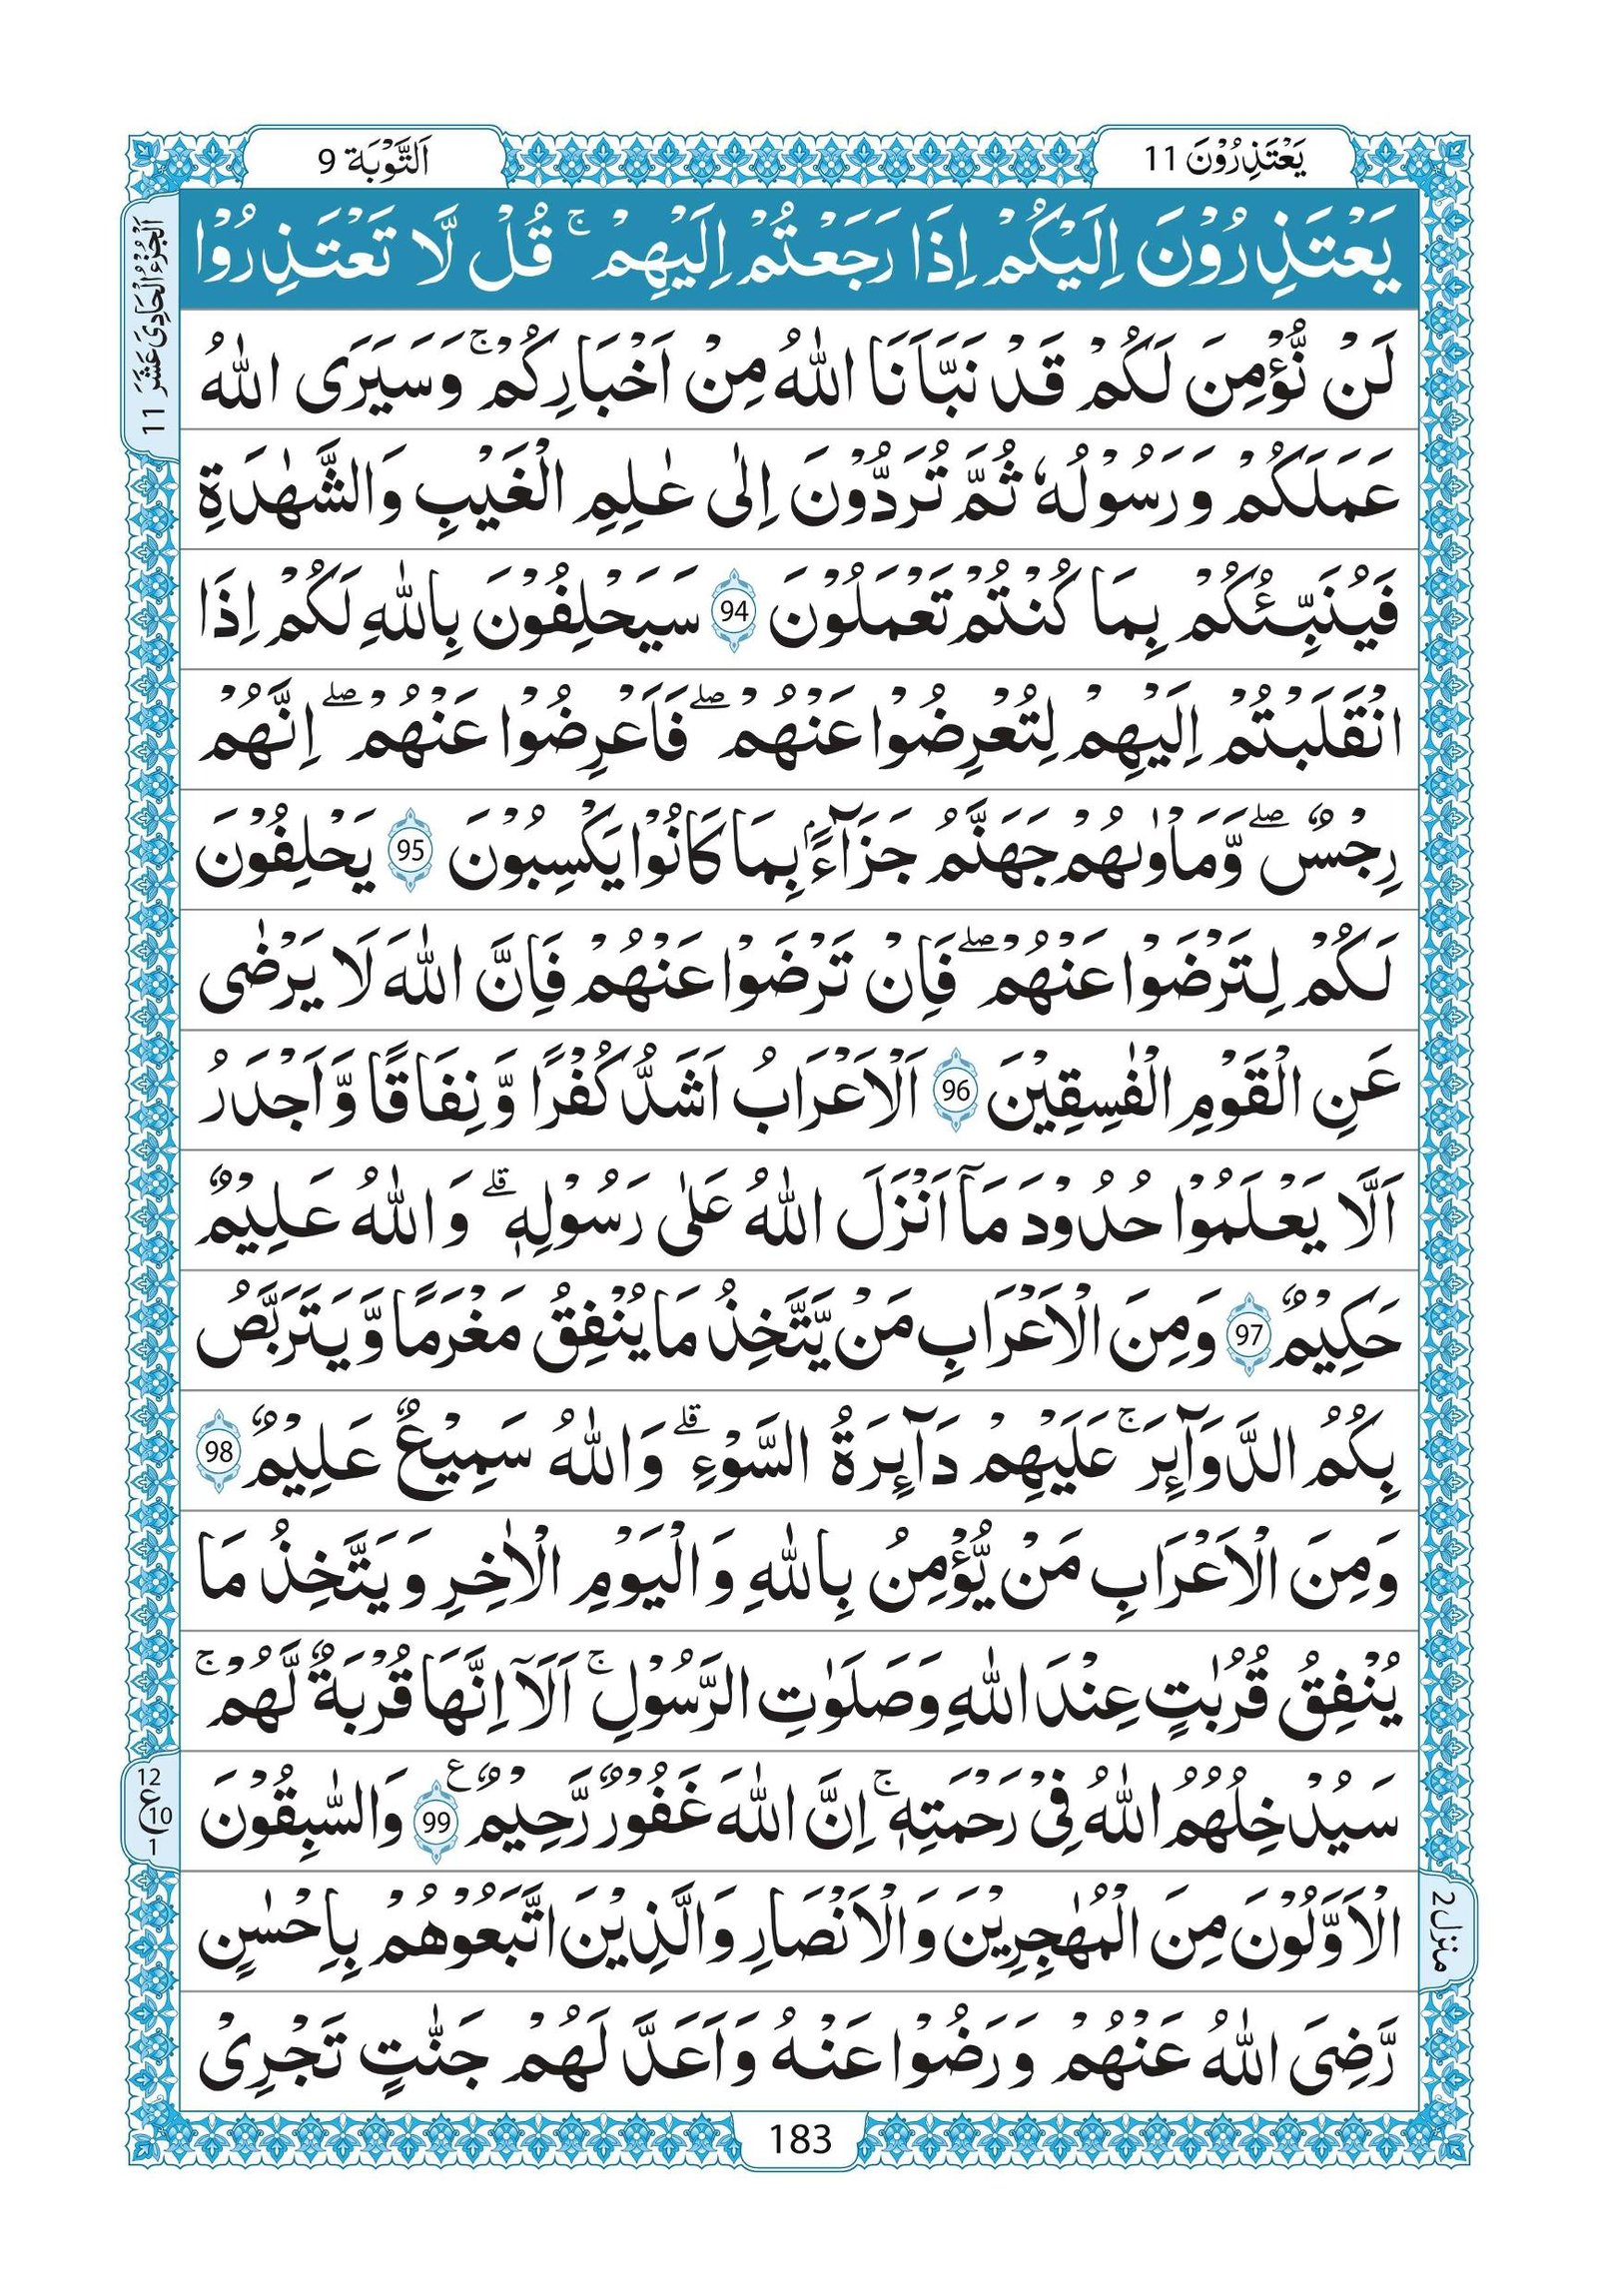 يَعْتَذِرُوْنَ 11
اَلتَّوْبَة 9
اَلْجُزْءُ الْحَادِیَ عَشَرَ 11
يَعْتَذِرُوْنَ اِلَيْكُمْ اِذَا رَجَعْتُمْ اِلَيْهِمْ ۚ قُلْ لَّا تَعْتَذِرُوْا
لَنْ نُّؤْمِنَ لَكُمْ قَدْ نَبَّاَنَا اللّٰهُ مِنْ اَخْبَارِكُمْ ۚ وَسَيَرَى اللّٰهُ
عَمَلَكُمْ وَرَسُوْلُهٗ ثُمَّ تُرَدُّوْنَ اِلٰى عٰلِمِ الْغَيْبِ وَالشَّهٰدَةِ
فَيُنَبِّئُكُمْ بِمَا كُنْتُمْ تَعْمَلُوْنَ 94 سَيَحْلِفُوْنَ بِاللّٰهِ لَكُمْ اِذَا
انْقَلَبْتُمْ اِلَيْهِمْ لِتُعْرِضُوْا عَنْهُمْ ۖ فَاَعْرِضُوْا عَنْهُمْ ۖ اِنَّهُمْ
رِجْسٌ ۖ وَّمَاْوٰىهُمْ جَهَنَّمُ جَزَآءًۢ بِمَا كَانُوْا يَكْسِبُوْنَ 95 يَحْلِفُوْنَ
لَكُمْ لِتَرْضَوْا عَنْهُمْ ۖ فَاِنْ تَرْضَوْا عَنْهُمْ فَاِنَّ اللّٰهَ لَا يَرْضٰى
عَنِ الْقَوْمِ الْفٰسِقِيْنَ 96 اَلْاَعْرَابُ اَشَدُّ كُفْرًا وَّنِفَاقًا وَّاَجْدَرُ
اَلَّا يَعْلَمُوْا حُدُوْدَ مَآ اَنْزَلَ اللّٰهُ عَلٰى رَسُوْلِهٖ ۗ وَاللّٰهُ عَلِيْمٌ
حَكِيْمٌ 97 وَمِنَ الْاَعْرَابِ مَنْ يَّتَّخِذُ مَا يُنْفِقُ مَغْرَمًا وَّيَتَرَبَّصُ
بِكُمُ الدَّوَآئِرَ ۚ عَلَيْهِمْ دَآئِرَةُ السَّوْءِ ۗ وَاللّٰهُ سَمِيْعٌ عَلِيْمٌ 98
وَمِنَ الْاَعْرَابِ مَنْ يُّؤْمِنُ بِاللّٰهِ وَالْيَوْمِ الْاٰخِرِ وَيَتَّخِذُ مَا
يُنْفِقُ قُرُبٰتٍ عِنْدَ اللّٰهِ وَصَلَوٰتِ الرَّسُوْلِ ۚ اَلَآ اِنَّهَا قُرْبَةٌ لَّهُمْ ۚ
سَيُدْخِلُهُمُ اللّٰهُ فِيْ رَحْمَتِهٖ ۚ اِنَّ اللّٰهَ غَفُوْرٌ رَّحِيْمٌ ع 99 وَالسّٰبِقُوْنَ
12 ع 10 1
الْاَوَّلُوْنَ مِنَ الْمُهٰجِرِيْنَ وَالْاَنْصَارِ وَالَّذِيْنَ اتَّبَعُوْهُمْ بِاِحْسٰنٍ
منزل 2
رَّضِىَ اللّٰهُ عَنْهُمْ وَرَضُوْا عَنْهُ وَاَعَدَّ لَهُمْ جَنّٰتٍ تَجْرِيْ
183